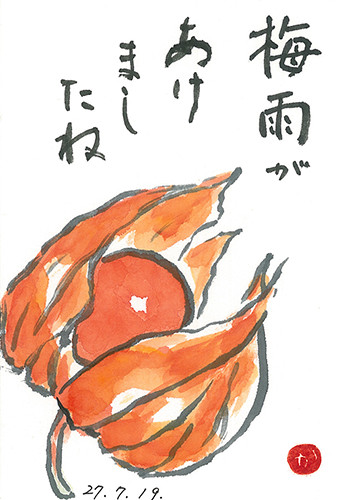 梅雨が
あけ
まし
たね
27.7.19.